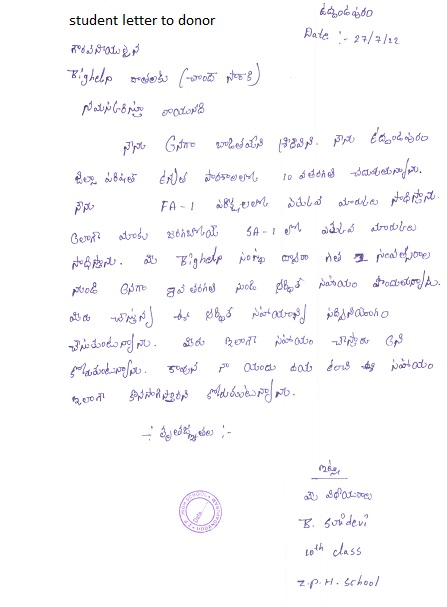 student letter to donor
ఉద్దండపురం
Date :- 27/7/22
గౌరవనీయులైన
Bighelp దాతలకు
నమస్కరిస్తూ వ్రాయునది
నేను చదువుతున్నాను. నేను ఉద్దండపురం
జిల్లా పరిషత్ ఉన్నత పాఠశాలలో 10 వ తరగతి చదువుతున్నాను.
నేను FA-1 పరీక్షలలో ఎక్కువ మార్కులు సాధిస్తాను.
అలాగే మాకు జరగబోయే SA-1 లో ఎక్కువ మార్కులు
సాధిస్తాను. మీ Bighelp సంస్థ ద్వారా గత సంవత్సరాల
నుండి తరగతి నుండి ఆర్థిక సహాయం పొందుతున్నాను.
మీరు చేస్తున్న ఈ ఆర్థిక సహాయాన్ని సద్వినియోగం
చేసుకుంటున్నాను. మీరు ఇలాగే సహాయం చేస్తారు అని
కోరుకుంటున్నాను. కావున నా యందు దయ ఉంచి ఈ సహాయం
ఇలాగే కొనసాగిస్తారని కోరుకుంటున్నాను.
-: కృతజ్ఞతలు :-
ఇట్లు
మీ విధేయురాలు
B. Sridevi
10th class
Z.P.H. School